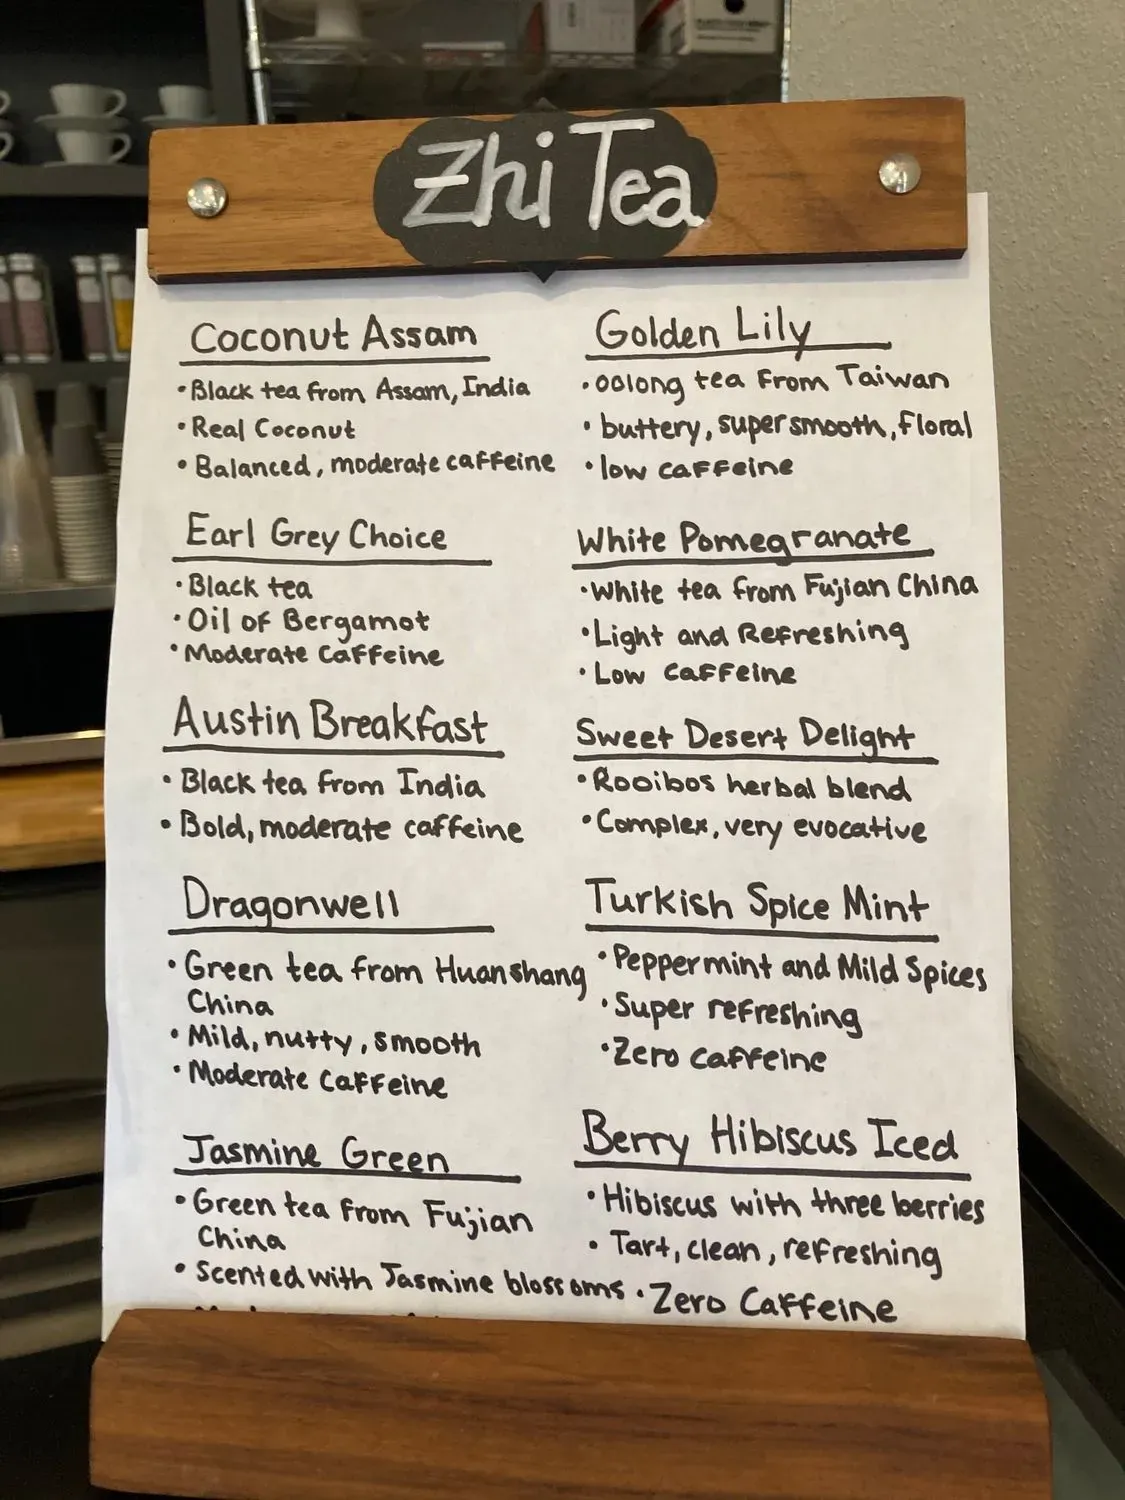 Zhi Tea
Coconut Assam
• Black tea from Assam, India
• Real Coconut
• Balanced, moderate caffeine
Earl Grey Choice
• Black tea
• Oil of Bergamot
• Moderate Caffeine
Austin Breakfast
• Black tea from India
• Bold, moderate caffeine
Dragonwell
• Green tea from Huanshang
China
• Mild, nutty, smooth
• Moderate Caffeine
Jasmine Green
• Green tea from Fujian
China
• Scented with Jasmine blossoms
Golden Lily
• oolong tea From Taiwan
• buttery, super smooth, floral
• low caffeine
White Pomegranate
• White tea from Fujian China
• Light and Refreshing
• Low caffeine
Sweet Desert Delight
• Rooibos herbal blend
• Complex, very evocative
Turkish Spice Mint
• Peppermint and Mild Spices
• Super refreshing
• Zero caffeine
Berry Hibiscus Iced
• Hibiscus with three berries
• Tart, clean, refreshing
• Zero Caffeine